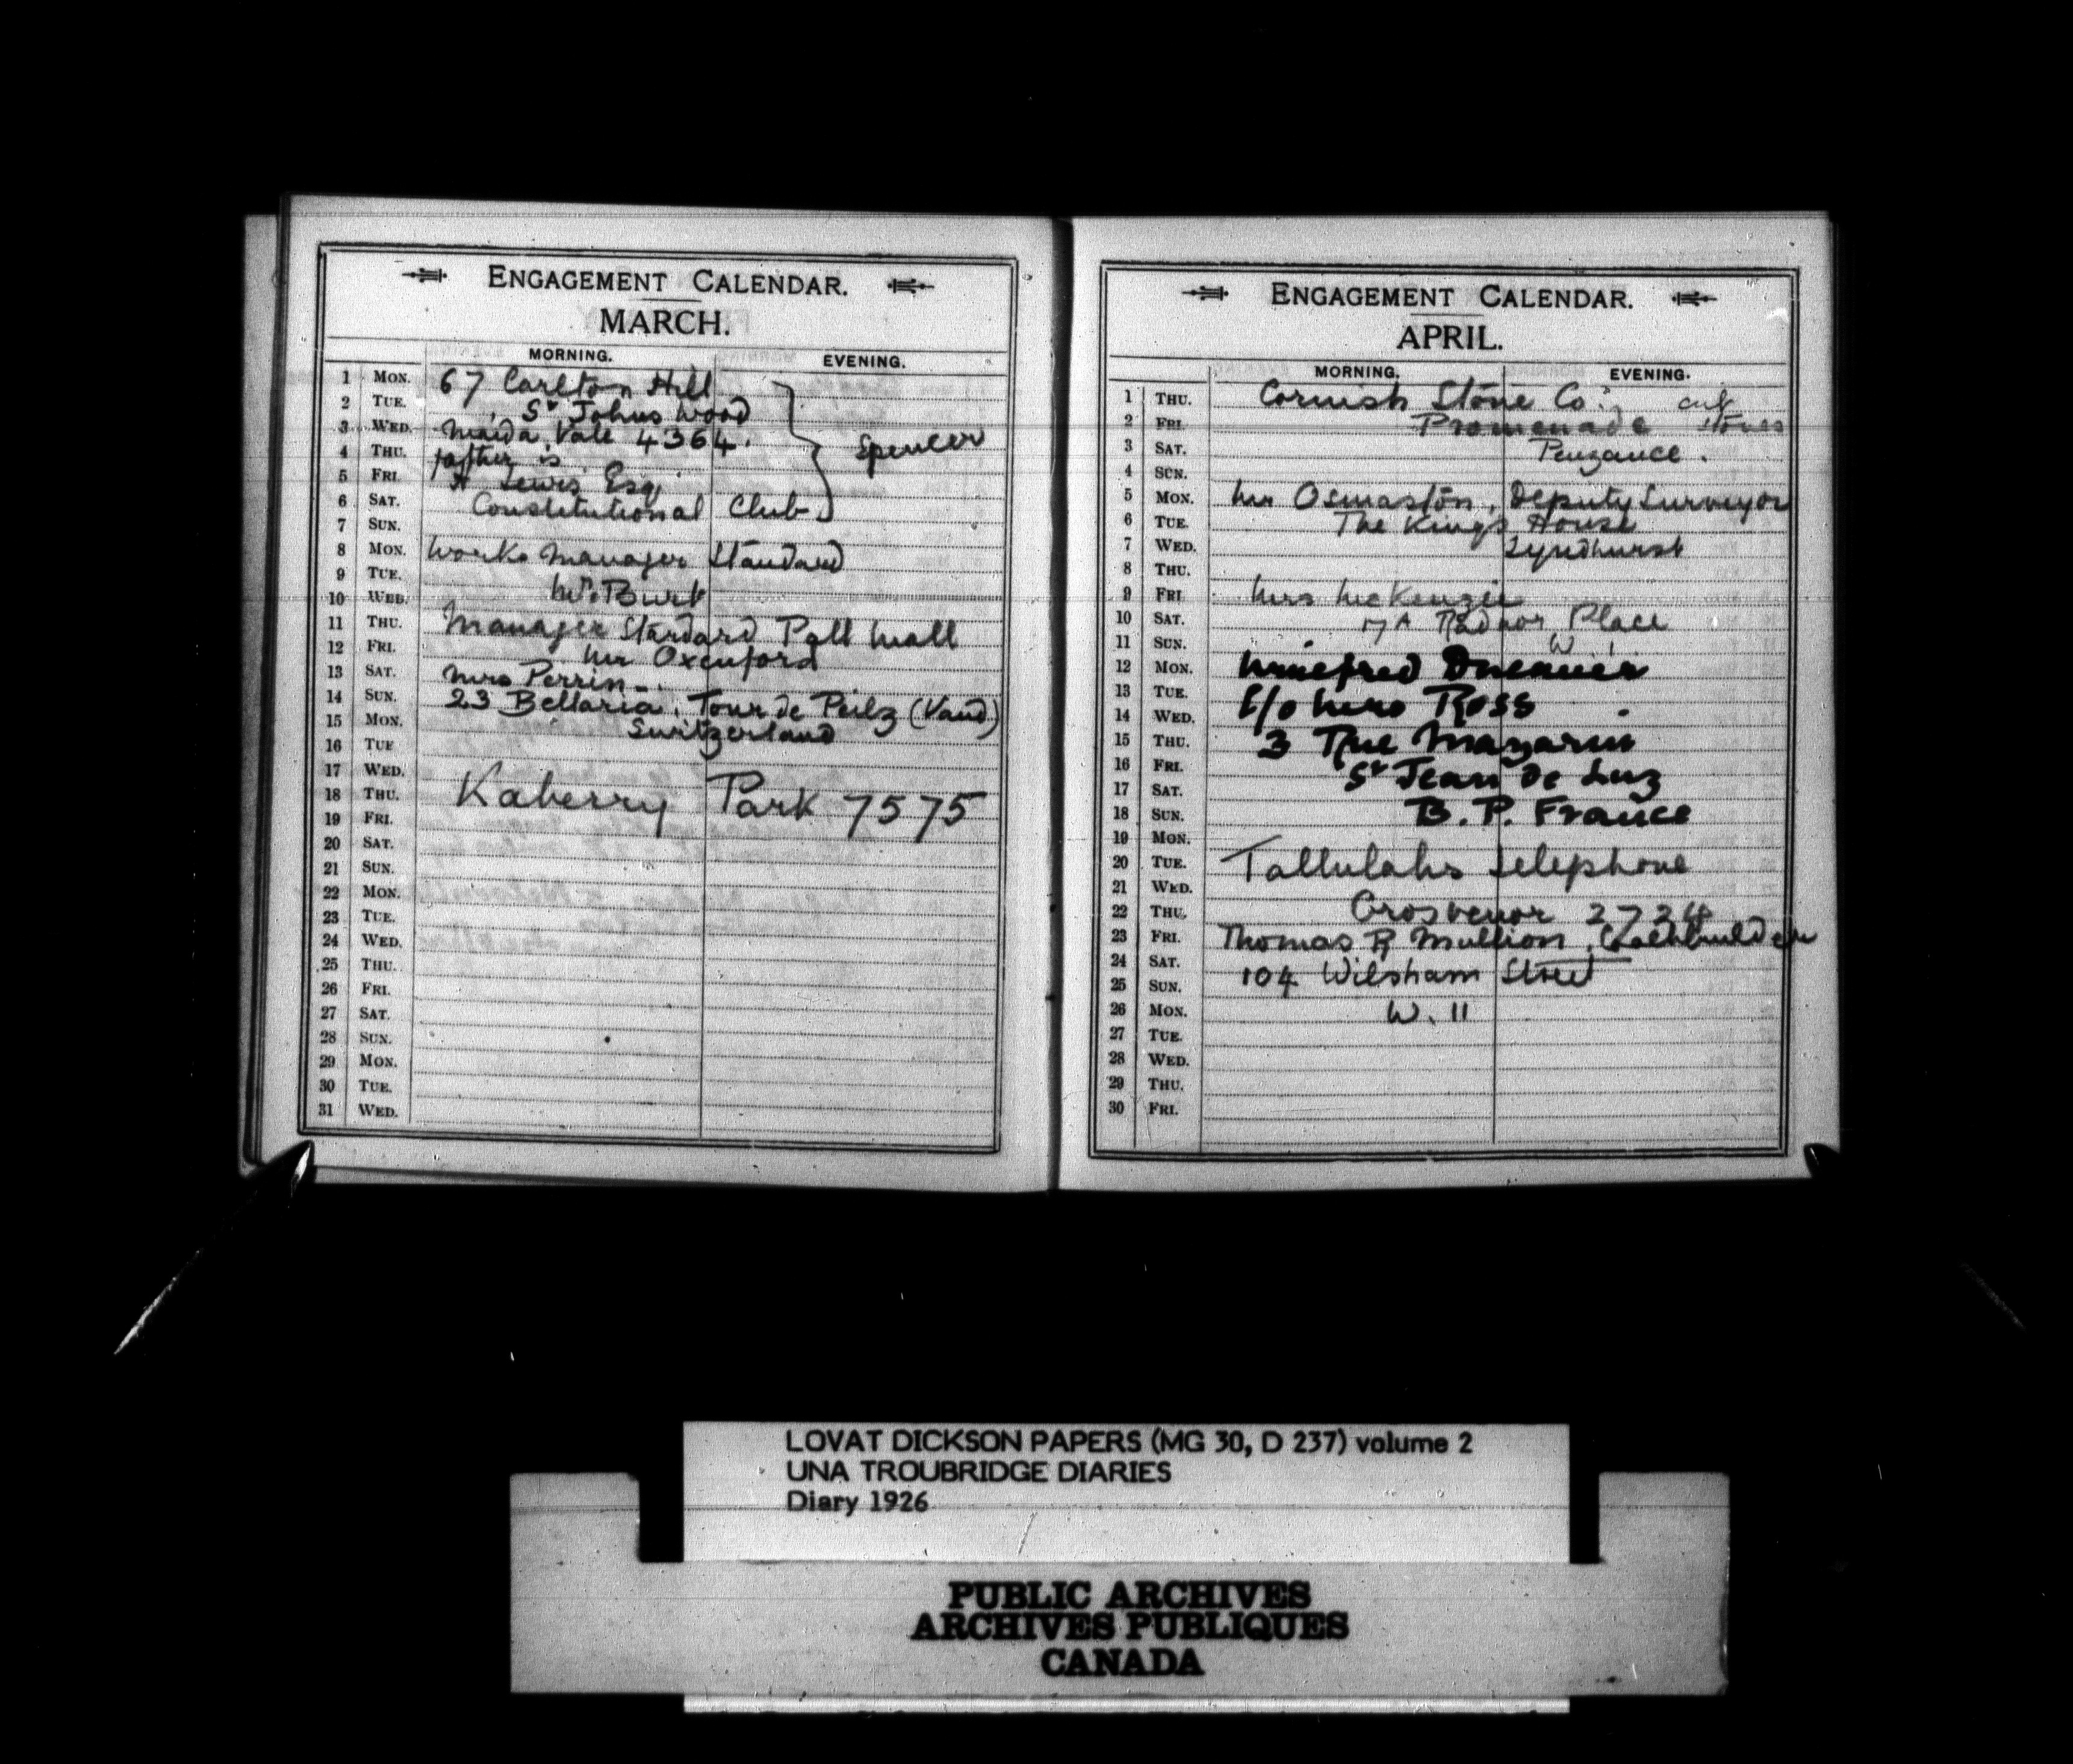 ENGAGEMENT CALENDAR.
MARCH.
MORNING. EVENING.
1 MON. 67 Carlton Hill
2 TUE. St Johns Wood
3 WED. Maida Vale 4364.
Spencer
4 THU. father is
5 FRI. A Lewis Esq
6 SAT. Constitutional Club
7 SUN.
8 MON. Works Manager Standard
9 TUE.
10 WED. Mr. Burt
11 THU. Manager Standard Pall Mall
12 FRI. Mr Oxenford
13 SAT. Mrs Perrin
14 SUN. 23 Bellaria, Tour de Peilz (Vaud)
15 MON. Switzerland
16 TUE
17 WED.
18 THU. Kaberry Park 7575
19 FRI.
20 SAT.
21 SUN.
22 MON.
23 TUE.
24 WED.
25 THU.
26 FRI.
27 SAT.
28 SUN.
29 MON.
30 TUE.
31 WED.
ENGAGEMENT CALENDAR.
APRIL.
MORNING. EVENING.
1 THU. Cornish Stone Co. cut
2 FRI. Promenade stones
3 SAT. Penzance.
4 SUN.
5 MON. Mr Osmaston, Deputy Surveyor
6 TUE. The Kings House
7 WED. Lyndhurst
8 THU.
9 FRI. Mrs McKenzie
10 SAT. 7A Radnor Place
11 SUN. W
12 MON. Winefred
13 TUE. C/o Mrs Ross
14 WED.
15 THU. 3 Rue Mazarin
16 FRI. St Jean de Luz
17 SAT.
18 SUN. B.P. France
19 MON.
20 TUE. Tallulahs telephone
21 WED.
22 THU. Grosvenor
23 FRI. Thomas R Mullion, Coachbuilder
24 SAT. 104 Wilsham Street
25 SUN.
26 MON. W. 11
27 TUE.
28 WED.
29 THU.
30 FRI.
LOVAT DICKSON PAPERS (MG 30, D 237) volume 2
UNA TROUBRIDGE DIARIES
Diary 1926
PUBLIC ARCHIVES
ARCHIVES PUBLIQUES
CANADA